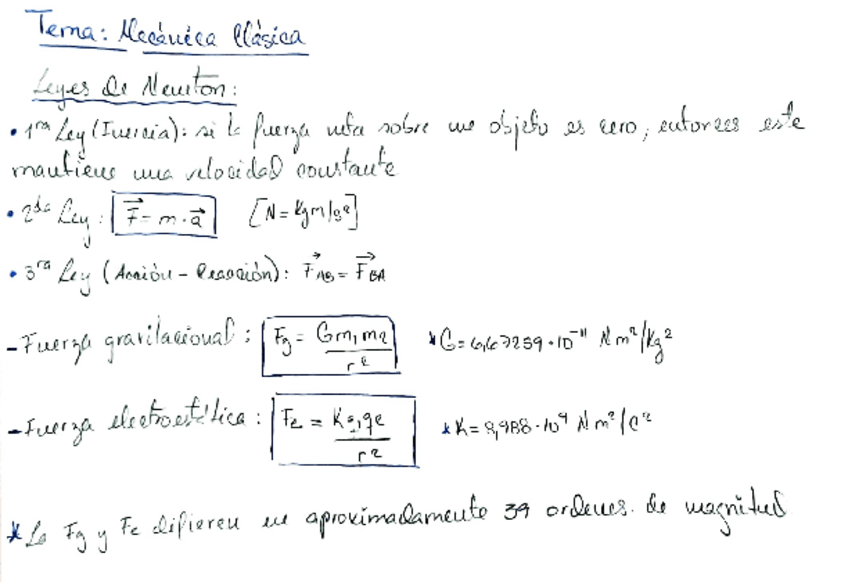 Tema: Mecánica Clásica
Leyes de Newton:
• 1ra Ley (Inercia): si la fuerza neta sobre un objeto es cero, entonces este
mantiene una velocidad constante
• 2da Ley: F⃗ = m·a⃗ [N = kgm/s²]
• 3ra Ley (Acción - Reacción): F⃗AB = F⃗BA
- Fuerza gravitacional: Fg = Gm₁m₂/r² * G = 6,67259·10⁻¹¹ Nm²/kg²
- Fuerza electroestática: Fe = Kq₁q₂/r² * K = 8,988·10⁹ Nm²/C²
* La Fg y Fe difieren en aproximadamente 39 ordenes de magnitud